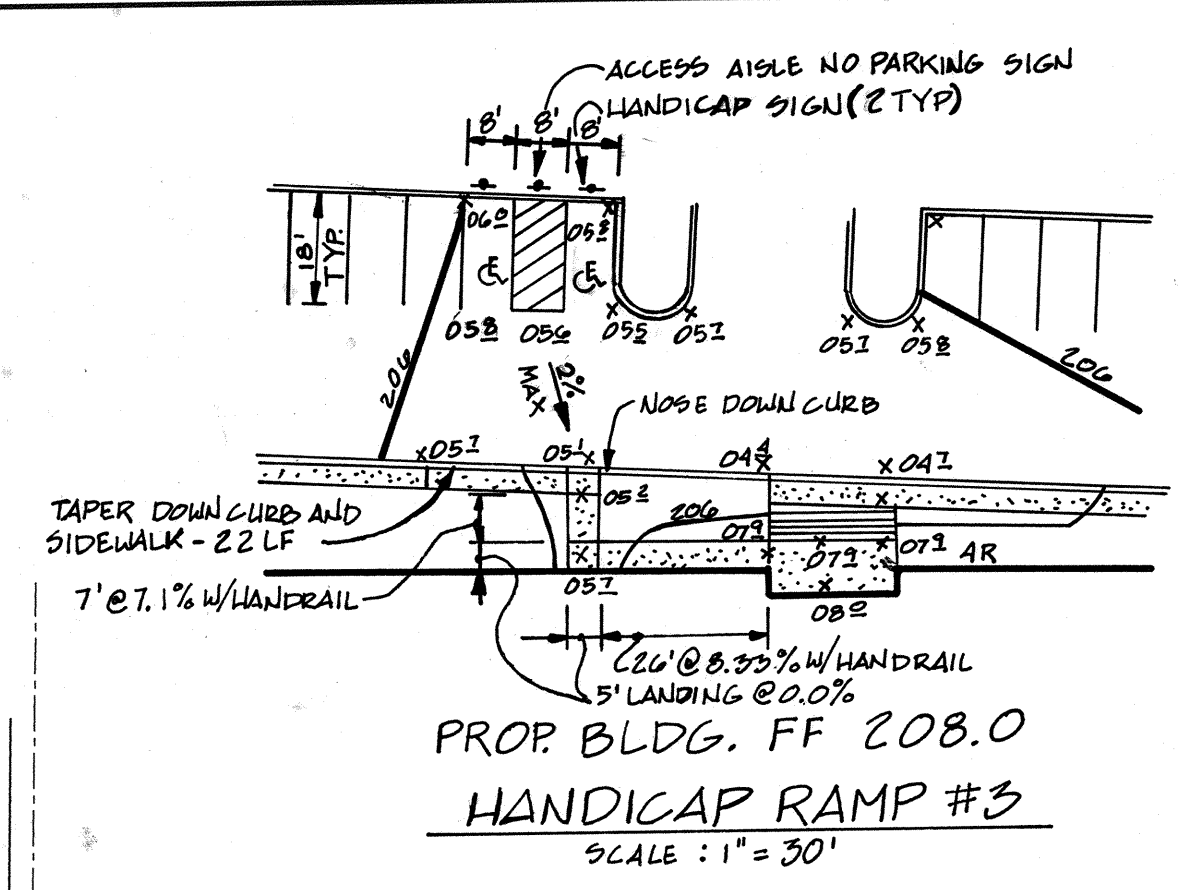 ACCESS AISLE NO PARKING SIGN
HANDICAP SIGN (2 TYP)
8' 8' 8'
18' TYP.
06⁰ 05⁸
05⁸ 05⁶ 05⁵ 05⁷
05⁷ 05⁸
206
206
2% MAX
NOSE DOWN CURB
05⁷ 05¹ 04⁴ 04⁷
05²
TAPER DOWN CURB AND
SIDEWALK - 22 LF
206
07⁹ 07⁹ 07⁹ AR
7' @ 7.1% W/HANDRAIL
05⁷
08⁰
26' @ 8.33% W/HANDRAIL
5' LANDING @ 0.0%
PROP. BLDG. FF 208.0
HANDICAP RAMP #3
SCALE : 1" = 30'